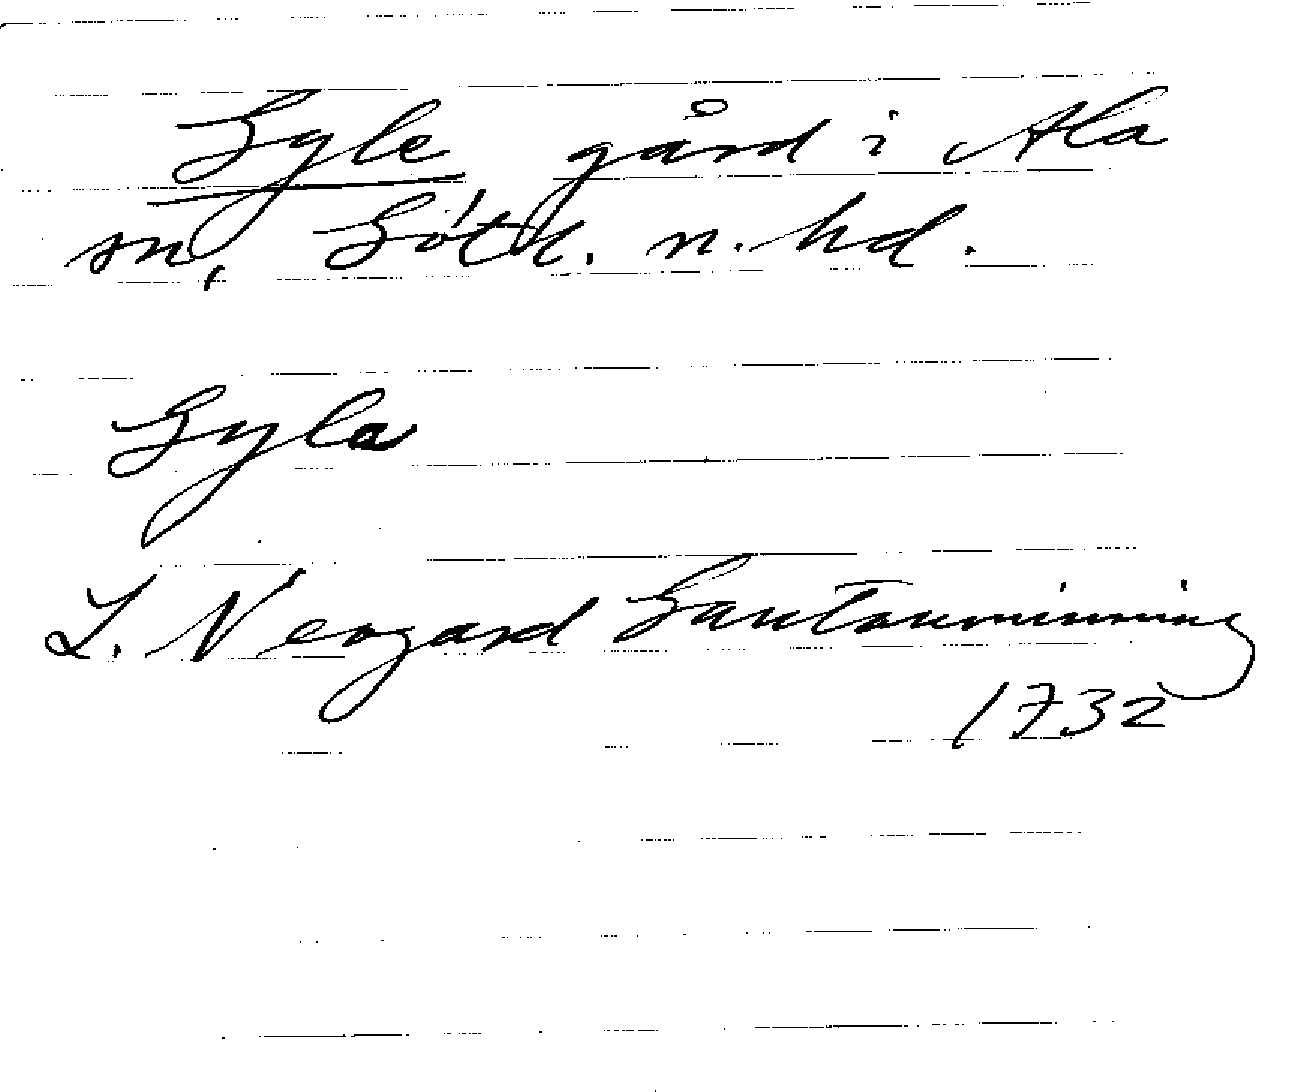 Gyle gård i Ala
sn, Gotl. n. hd.
Gyla
L. Neogard Gautauminning
1732